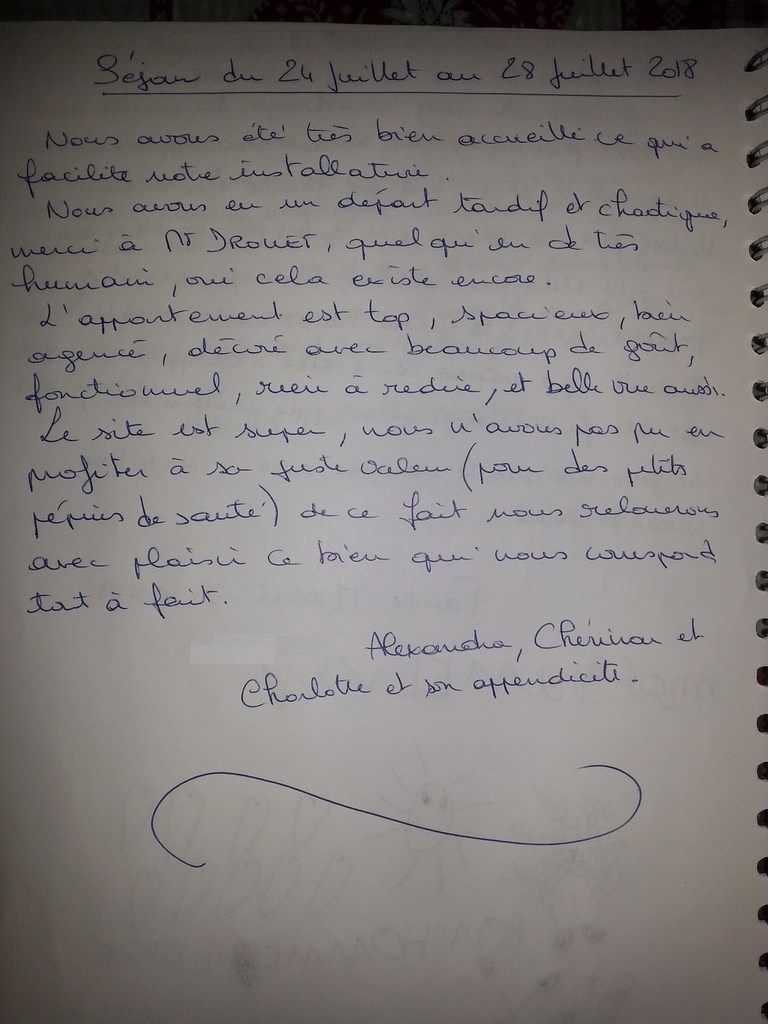 Séjour du 24 Juillet au 28 Juillet 2018
Nous avons été très bien accueilli ce qui a
facilité notre installation.
Nous avons eu un départ tardif et chaotique,
merci à Mr DROUET, quelqu'un de très
humain, oui cela existe encore.
L'appartement est top, spacieux, bien
agencé, décoré avec beaucoup de goût,
fonctionnel, rien à redire, et belle vue aussi.
Le site est super, nous n'avons pas pu en
profiter à sa juste valeur (pour des petits
pépins de santé) de ce fait nous relouerons
avec plaisir ce bien qui nous correspond
tout à fait.
Alexandra, et
Charlotte et son appendicite.